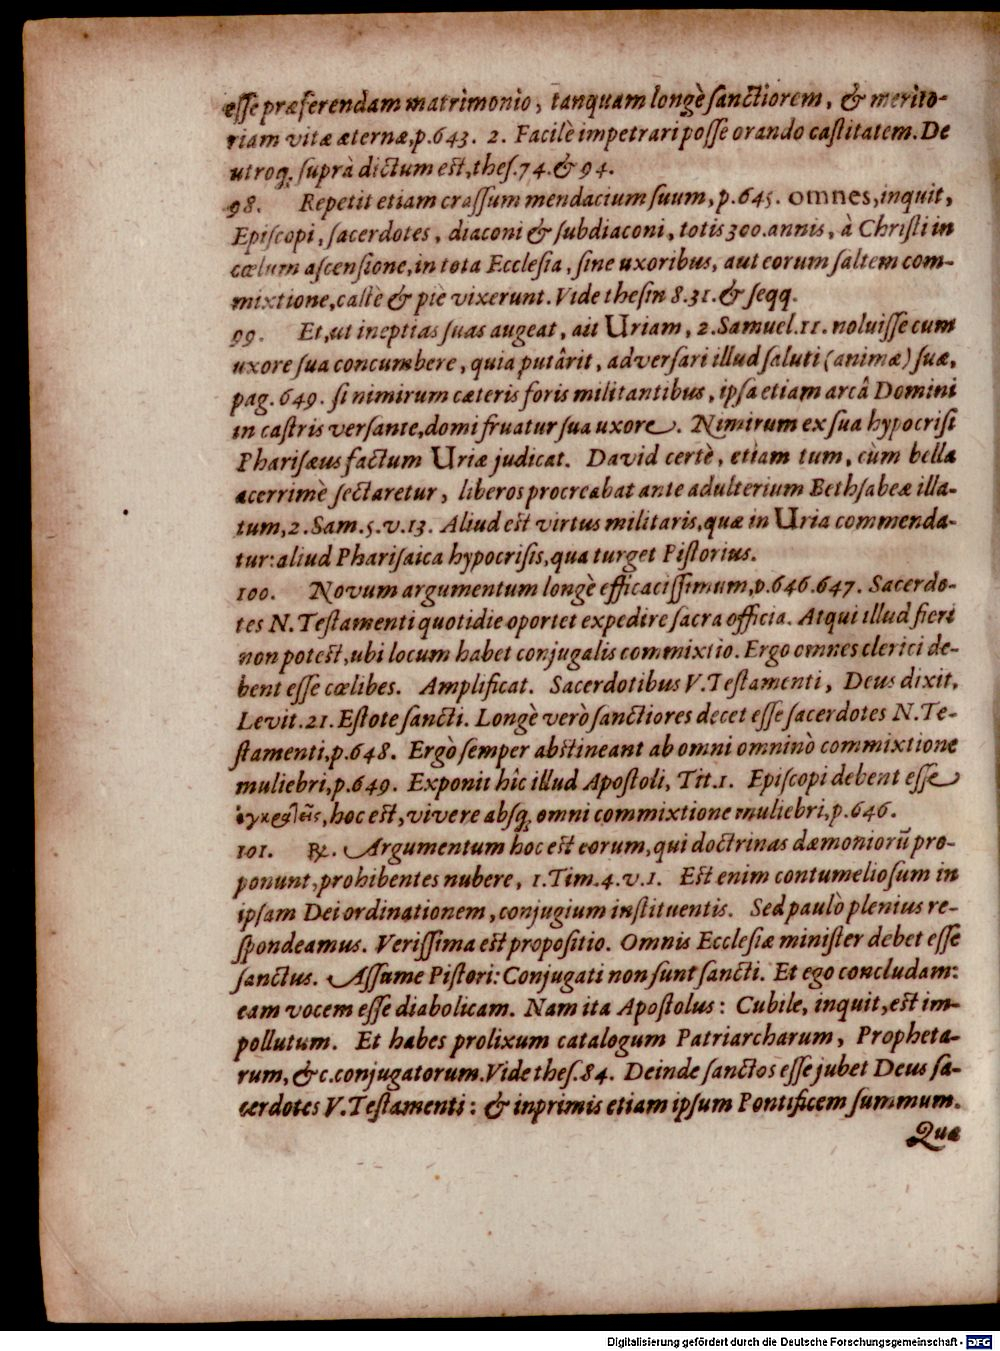 esse præferendam matrimonio, tanquam longè sanctiorem, & merito-
riam vitæ æternæ, p.643. 2. Facilè impetrari posse orando castitatem. De
utroq; suprà dictum est, thes.74.& 94.
98. Repetit etiam crassum mendacium suum, p.645. omnes, inquit,
Episcopi, sacerdotes, diaconi & subdiaconi, totis 300. annis, à Christi in
cœlum ascensione, in tota Ecclesia, sine uxoribus, aut eorum saltem com-
mixtione, castè & piè vixerunt. Vide thesin 8.31.& seqq.
99. Et, ut ineptias suas augeat, ait Uriam, 2.Samuel.11. noluisse cum
uxore sua concumbere, quia putârit, adversari illud saluti (animæ) suæ,
pag. 649. si nimirum cæteris foris militantibus, ipsa etiam arcâ Domini
in castris versante, domi fruatur sua uxore. Nimirum ex sua hypocrisi
Pharisæus factum Uriæ judicat. David certè, etiam tum, cùm bella
acerrimè sectaretur, liberos procreabat ante adulterium Bethsabeæ illa-
tum, 2.Sam.5.v.13. Aliud est virtus militaris, quæ in Uria commenda-
tur: aliud Pharisaica hypocrisis, qua turget Pistorius.
100. Novum argumentum longè efficacissimum, p.646.647. Sacerdo-
tes N. Testamenti quotidie oportet expedire sacra officia. Atqui illud fieri
non potest, ubi locum habet conjugalis commixtio. Ergo omnes clerici de-
bent esse cœlibes. Amplificat. Sacerdotibus V. Testamenti, Deus dixit,
Levit.21. Estote sancti. Longè verò sanctiores decet esse sacerdotes N. Te-
stamenti, p.648. Ergò semper abstineant ab omni omninò commixtione
muliebri, p.649. Exponit hîc illud Apostoli, Tit.1. Episcopi debent esse
ἐγκρατεῖς, hoc est, vivere absq; omni commixtione muliebri, p.646.
101. ℞. Argumentum hoc est eorum, qui doctrinas dæmoniorũ pro-
ponunt, prohibentes nubere, 1.Tim.4.v.1. Est enim contumeliosum in
ipsam Dei ordinationem, conjugium instituentis. Sed paulò plenius re-
spondeamus. Verissima est propositio. Omnis Ecclesiæ minister debet esse
sanctus. Assume Pistori: Conjugati non sunt sancti. Et ego concludam:
eam vocem esse diabolicam. Nam ita Apostolus: Cubile, inquit, est im-
pollutum. Et habes prolixum catalogum Patriarcharum, Propheta-
rum, &c. conjugatorum. Vide thes.84. Deinde sanctos esse jubet Deus sa-
cerdotes V. Testamenti: & inprimis etiam ipsum Pontificem summum.
Quæ
Digitalisierung gefördert durch die Deutsche Forschungsgemeinschaft - DFG